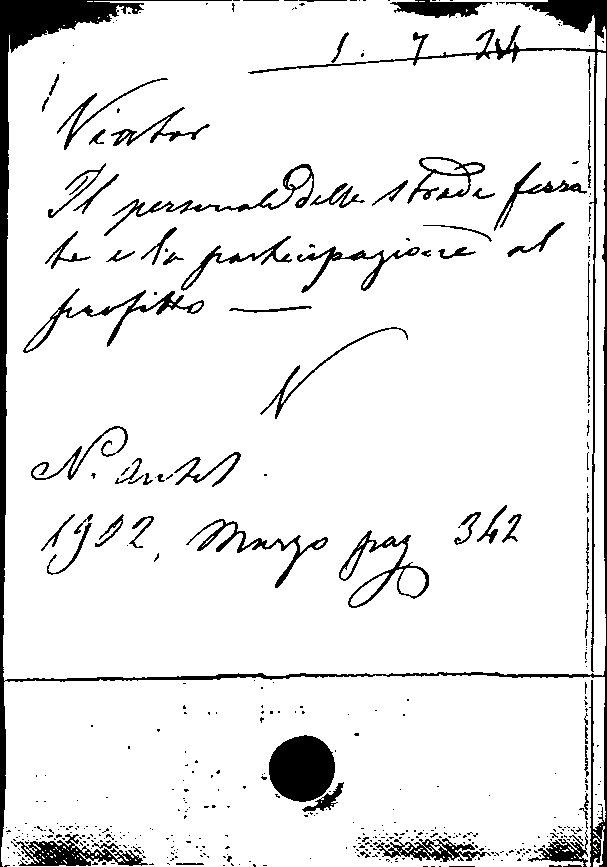 1.7.24
Viator
Il personale delle strade ferra
te e la partecipazione al
profitto —
N
N. Antol.
1902, Marzo pag 342